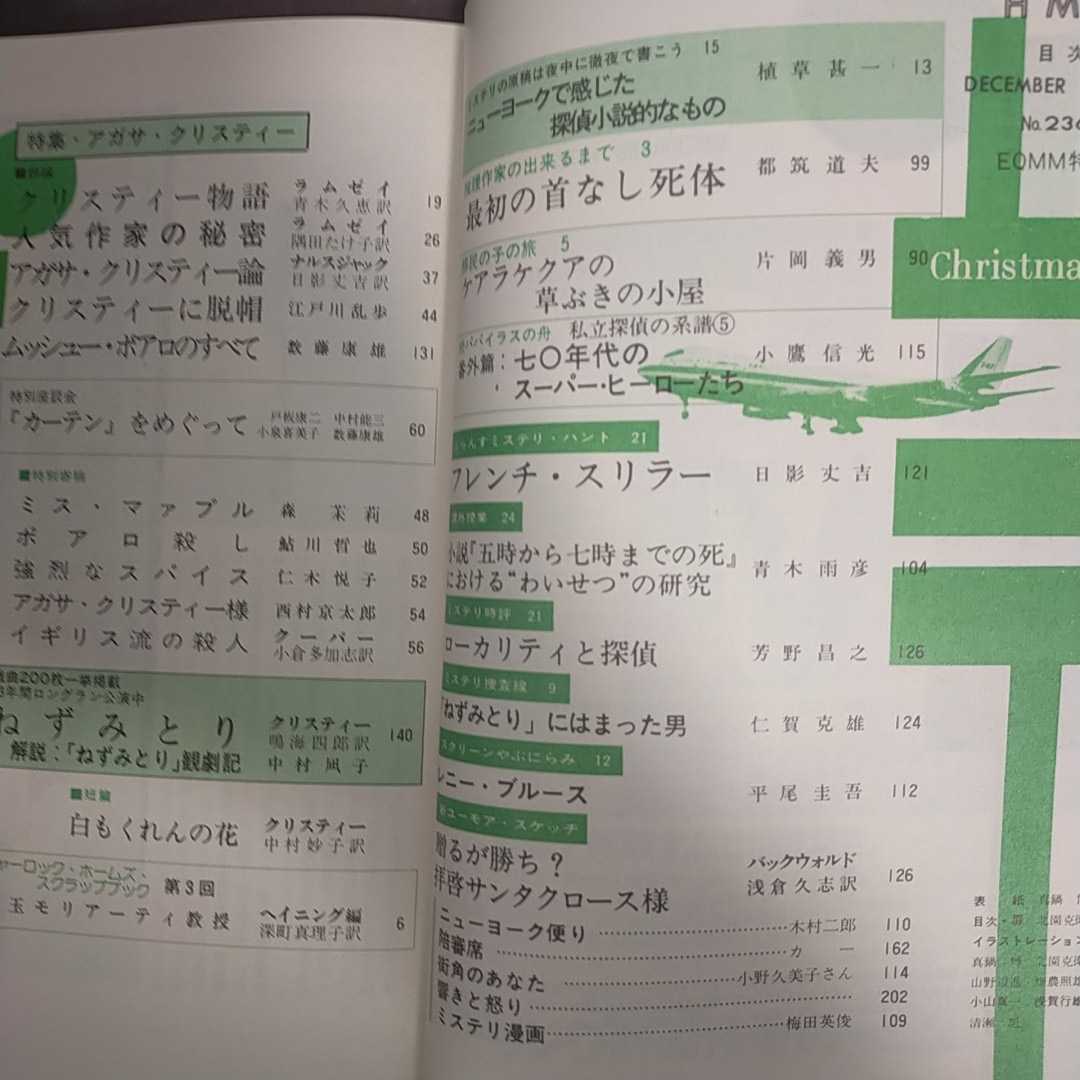 特集・アガサ・クリスティー
クリスティー物語 ラムゼイ 青木久恵訳 19
人気作家の秘密 ラムゼイ 隅田たけ子訳 26
アガサ・クリスティー論 ナルスジャック 日影丈吉訳 37
クリスティーに脱帽 江戸川乱歩 44
ムッシュー・ポアロのすべて 数藤康雄 131
特別座談会
『カーテン』をめぐって 戸板康二 中村能三 小泉喜美子 数藤康雄 60
■特別寄稿
ミス・マァプル 森茉莉 48
ポアロ殺し 鮎川哲也 50
強烈なスパイス 仁木悦子 52
アガサ・クリスティー様 西村京太郎 54
イギリス流の殺人 クーパー 小倉多加志訳 56
戯曲200枚一挙掲載
3年間ロングラン公演中
ねずみとり クリスティー 鳴海四郎訳 140
解説:「ねずみとり」観劇記 中村凪子
■短篇
白もくれんの花 クリスティー 中村妙子訳
ャーロック・ホームズ・
スクラップブック 第3回
玉モリアーティ教授 ヘイニング編 深町真理子訳 6
HM
目次
DECEMBER
No.236
EQMM特
Christma
ミステリの原稿は夜中に徹夜で書こう 15
ニューヨークで感じた
探偵小説的なもの 植草甚一 13
推理作家の出来るまで 3
最初の首なし死体 都筑道夫 99
移民の子の旅 5
ケアラケクアの
草ぶきの小屋 片岡義男 90
パパイラスの舟 私立探偵の系譜⑤
番外篇:七〇年代の
スーパー・ヒーローたち 小鷹信光 115
ふらんすミステリ・ハント 21
フレンチ・スリラー 日影丈吉 121
課外授業 24
小説『五時から七時までの死』
における“わいせつ”の研究 青木雨彦 104
ミステリ時評 21
ローカリティと探偵 芳野昌之 126
ミステリ捜査線 9
「ねずみとり」にはまった男 仁賀克雄 124
スクリーンやぶにらみ 12
レニー・ブルース 平尾圭吾 112
ユーモア・スケッチ
贈るが勝ち?
拝啓サンタクロース様 バックウォルド 浅倉久志訳 126
ニューヨーク便り 木村二郎 110
陪審席 カー 162
街角のあなた 小野久美子さん 114
響きと怒り 202
ミステリ漫画 梅田英俊 109
表紙 真鍋
目次・扉 北園克
イラストレーション
真鍋博 北園克
山野辺進 畑農照雄
小山 一 浅賀行雄
清瀬